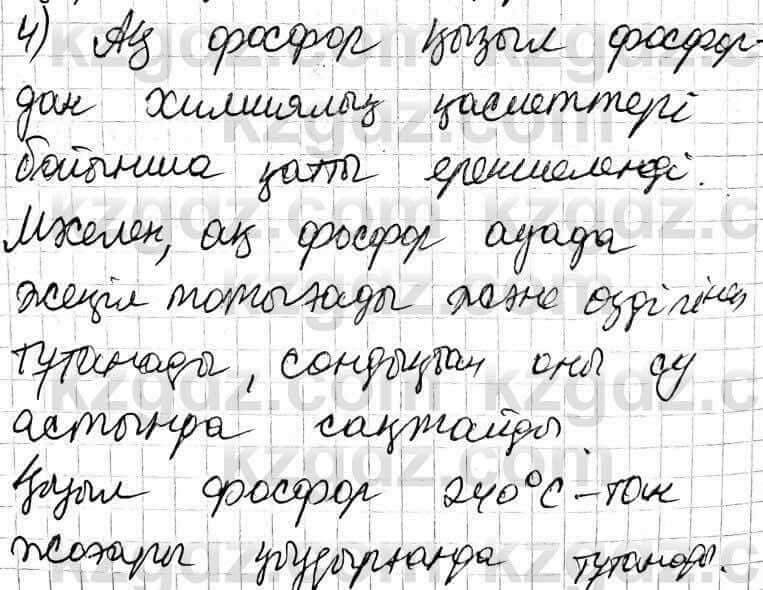 4) Ақ фосфор қызыл фосфор-
дан химиялық қасиеттері
бойынша қатты ерекшеленді.
Мәселен, ақ фосфор ауада
жеңіл тотығады және өздігінен
тұтанады, сондықтан оны су
астында сақтайды
Қызыл фосфор 240°C-тан
жоғары қыздырғанда тұтанады.
kzgdz.com